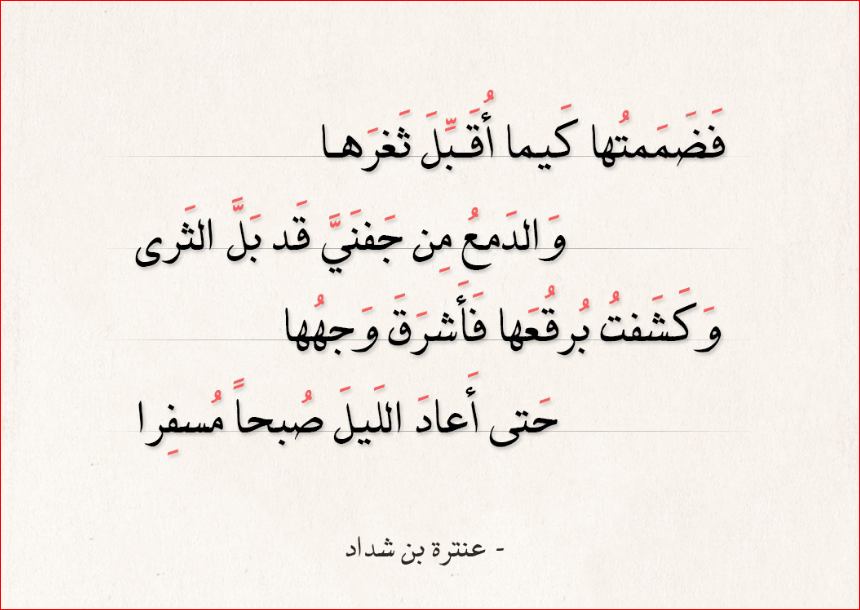 فَضَمَمتُها كَيما أُقَبِّلَ ثَغرَها
وَالدَمعُ مِن جَفنَيَّ قَد بَلَّ الثَرى
وَكَشَفتُ بُرقُعَها فَأَشرَقَ وَجهُها
حَتى أَعادَ اللَيلَ صُبحاً مُسفِرا
- عنترة بن شداد